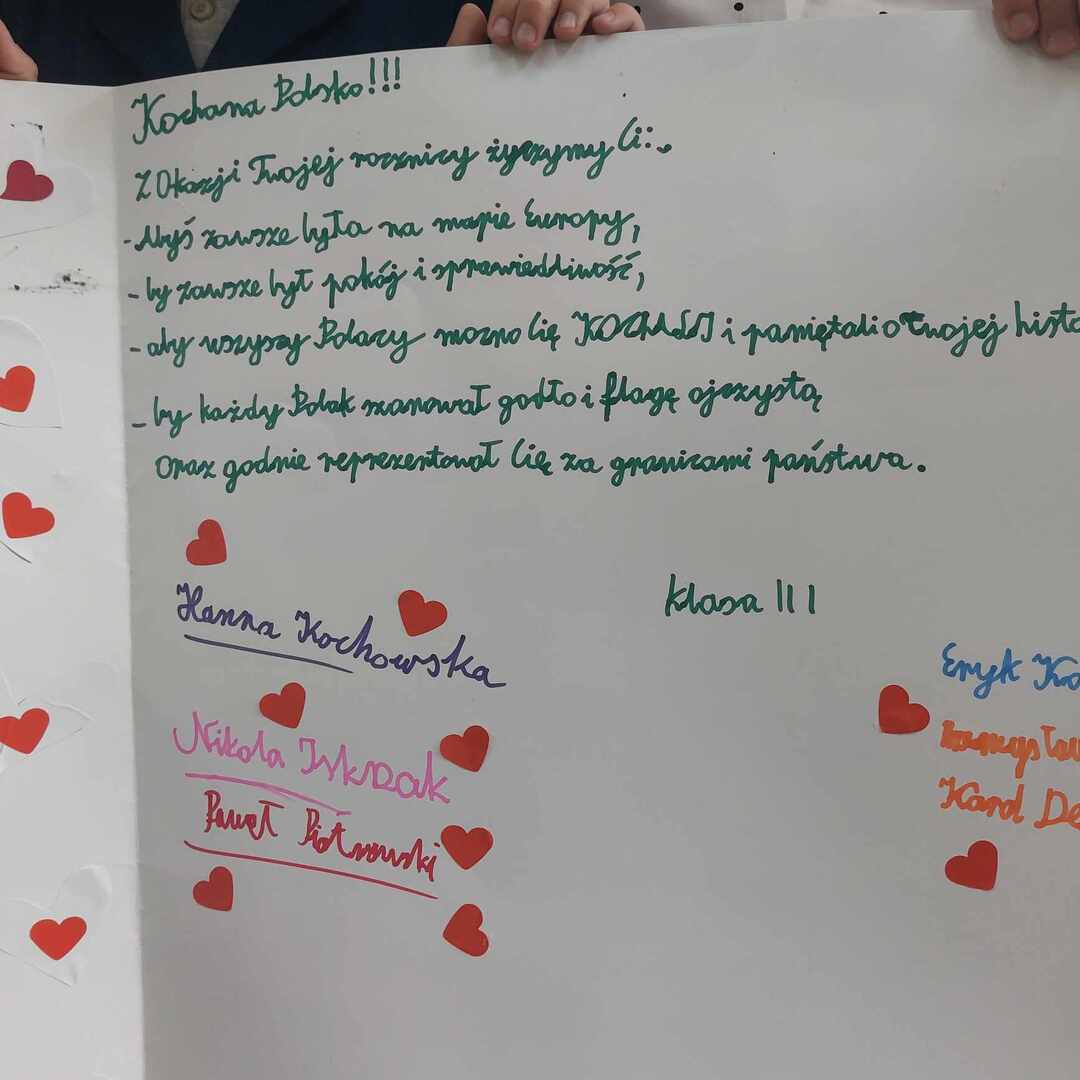 Kochana Polsko!!!
Z Okazji Twojej rocznicy życzymy Ci:
- Abyś zawsze była na mapie Europy,
- by zawsze był pokój i sprawiedliwość,
- aby wszyscy Polacy mocno Cię KOCHALI i pamiętali o Twojej histo
- by każdy Polak szanował godło i flagę ojczystą
oraz godnie reprezentował Cię za granicami państwa.
klasa III
Hanna Kochowska
Eryk Ko
Nikola
Karol De
Paweł Piotrowski